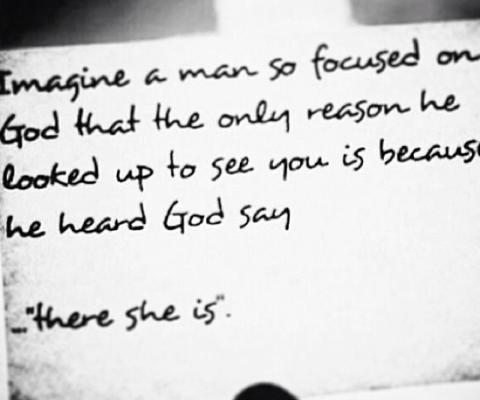 Imagine a man so focused on
God that the only reason he
looked up to see you is because
he heard God say
..."there she is".